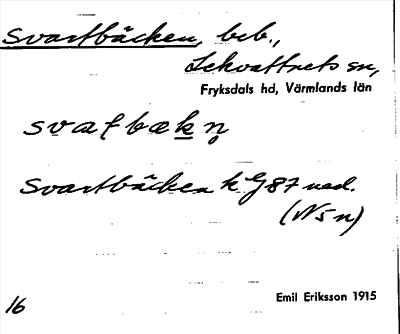 Svartbäcken, beb.,
Lekvattnets sn,
Fryksdals hd, Värmlands län
svaʈbækn̥
Svartbäcken k G 87 ned.
(N5n)
16
Emil Eriksson 1915